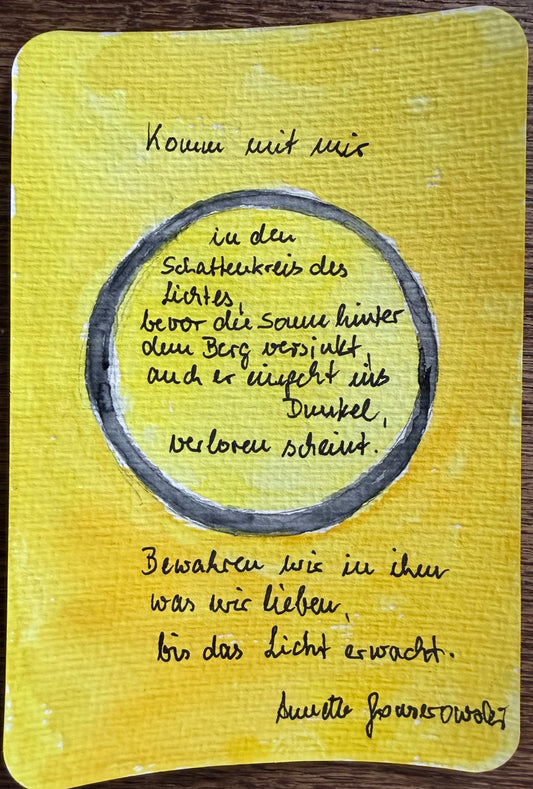 Komm mit mir
in den
Schattenkreis des
Lichtes,
bevor die Sonne hinter
dem Berg versinkt,
auch er eingeht ins
Dunkel,
verloren scheint.
Bewahren wir in ihm
was wir lieben,
bis das Licht erwacht.
Annette Gonserowski